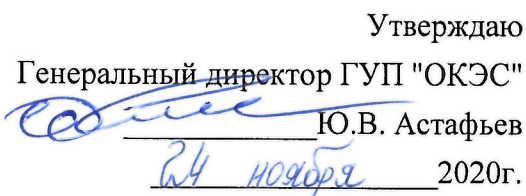 Утверждаю
Генеральный директор ГУП "ОКЭС"
Ю.В. Астафьев
24 ноября 2020г.